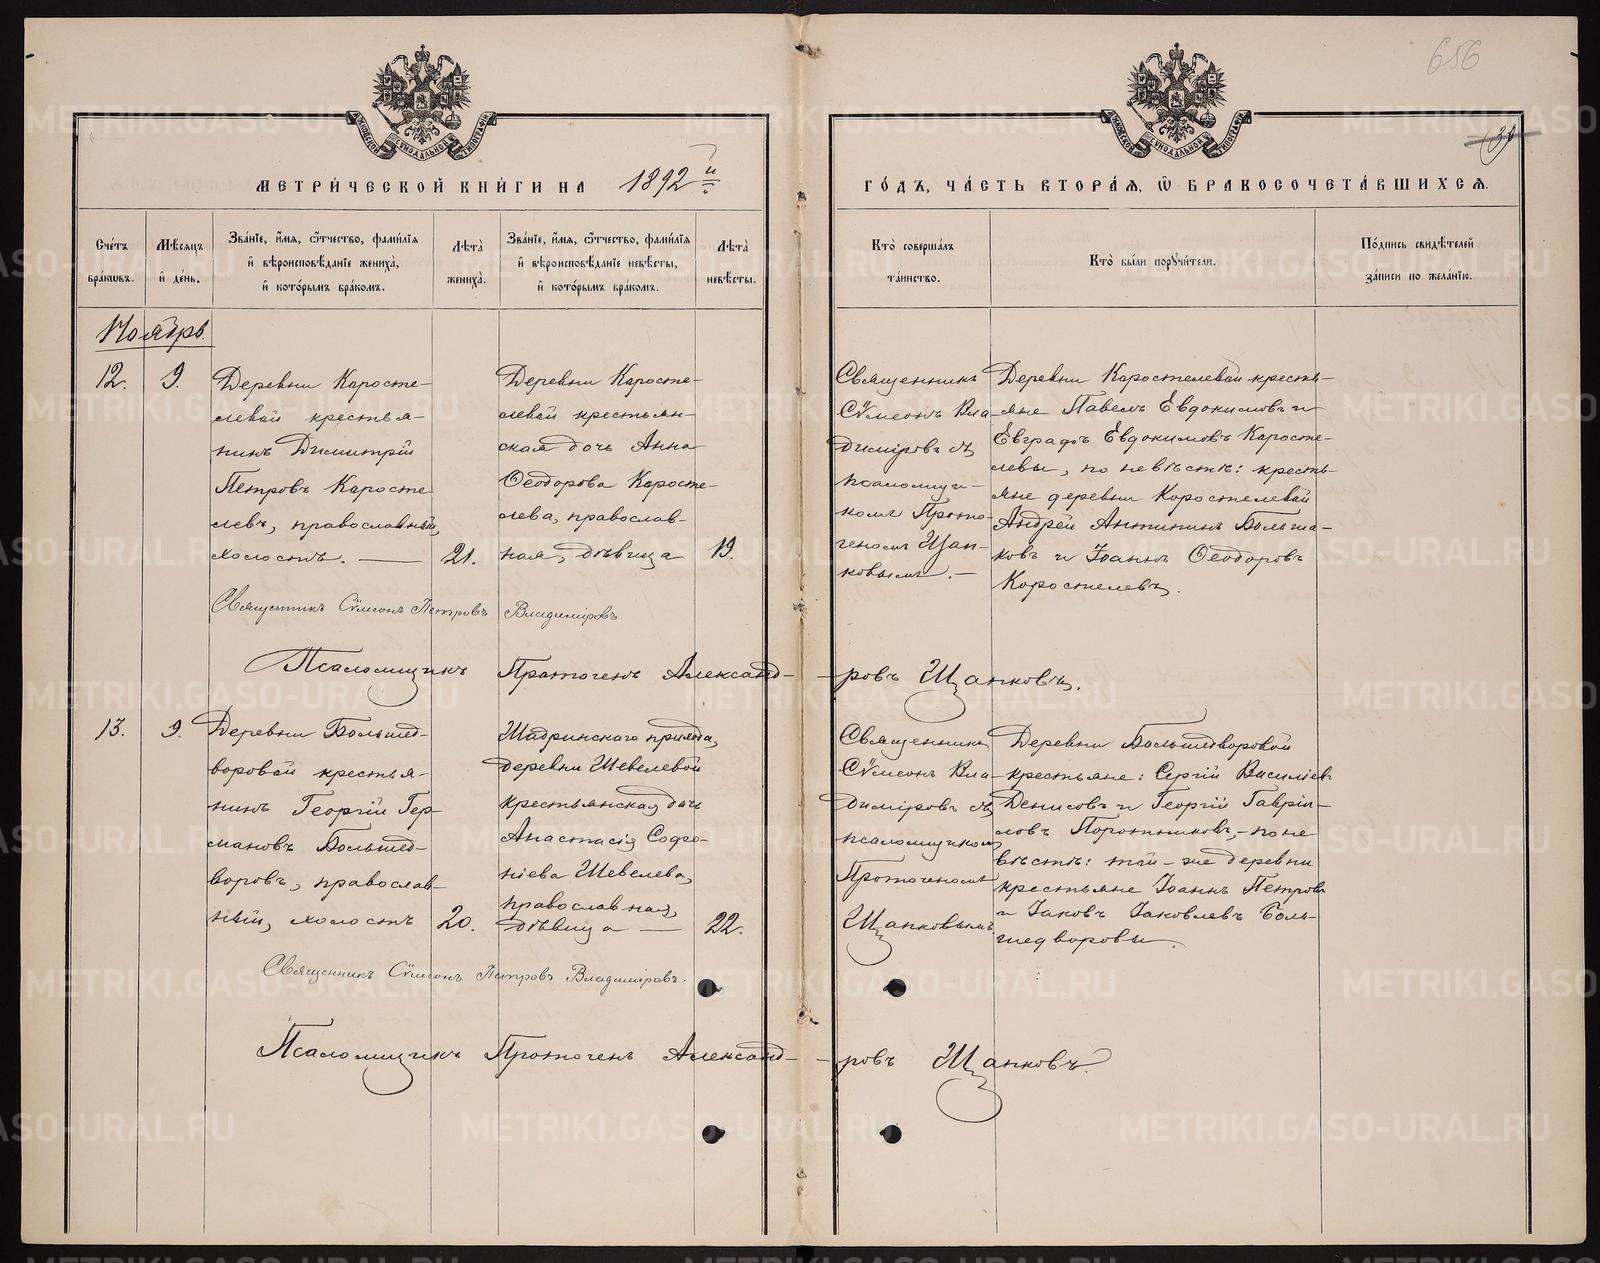 656
31
МОСКОВСКОЙ СѴНОДАЛЬНОЙ ТИПОГРАФІИ
МОСКОВСКОЙ СѴНОДАЛЬНОЙ ТИПОГРАФІИ
МЕТРИ́ЧЕСКОЙ КНИ́ГИ НА 1892 й
ГО́ДЪ, ЧА́СТЬ ВТОРА́Я, Ѽ БРАКОСОЧЕТА́ВШИХСЯ.
Сче́тъ бра́кѡвъ.
Мѣ́сяцъ и҆ де́нь.
Зва́нїе, и҆́мя, ѻ҆́тчество, фами́лїя и҆ вѣроисповѣ́данїе жениха̀, и҆ кото́рымъ бра́комъ.
Лѣта̀ жениха̀.
Зва́нїе, и҆́мя, ѻ҆́тчество, фами́лїя и҆ вѣроисповѣ́данїе невѣ́сты, и҆ кото́рымъ бра́комъ.
Лѣта̀ невѣ́сты.
Кто̀ соверша́лъ та́инство.
Кто̀ бы́ли порꙋчи́тели.
По́дпись свидѣ́телей за́писи по жела́нїю.
Ноябрь.
12.
9.
Деревни Каросте-
левай крестья-
нинъ Димитрій
Петровъ Каросте
левъ, православный,
холостъ. —
21.
Деревни Каросте-
левай крестьян-
ская дочь Анна
Ѳеодорова Каросте-
лева, православ-
ная, дѣвица
19.
Священникъ
Сѵмеонъ Вла-
диміровъ съ
псаломщи-
комъ Прото-
геномъ Щап-
ковымъ. —
Деревни Каростелевай кресть-
яне Павелъ Евдокимовъ и
Евграфъ Евдокимовъ Каросте-
левы, по невѣстѣ: кресть-
яне деревни Коростелевай
Андрей Антипинъ Больша-
ковъ и Іоаннъ Ѳеодоровъ
Коростелевъ.
Священникъ Сѵмеонъ Петровъ Владиміровъ.
Псаломщикъ Протогенъ Александ-ровъ Щапковъ.
13.
9.
Деревни Большед-
воровай крестья-
нинъ Георгій Гер-
мановъ Большед-
воровъ, православ-
ный, холостъ
20.
Шадринскаго прихода,
деревни Шевелевой
крестьянская дочь
Анастасія Софро-
ніева Шевелева,
православная,
дѣвица —
22.
Священникъ
Сѵмеонъ Вла-
диміровъ съ
псаломщикомъ
Протогеномъ
Щапковымъ
Деревни Большедворовой
крестьяне: Сергій Василіевъ
Денисовъ и Георгій Гавріи-
ловъ Поротниковъ, - по не-
вѣстѣ: той-же деревни
крестьяне Іоаннъ Петровъ
и Іаковъ Іаковлевъ Боль-
шедворовы.
Священникъ Сѵмеонъ Петровъ Владиміровъ.
Псаломщикъ Протогенъ Александ-ровъ Щапковъ.
METRIKI.GASO-URAL.RU